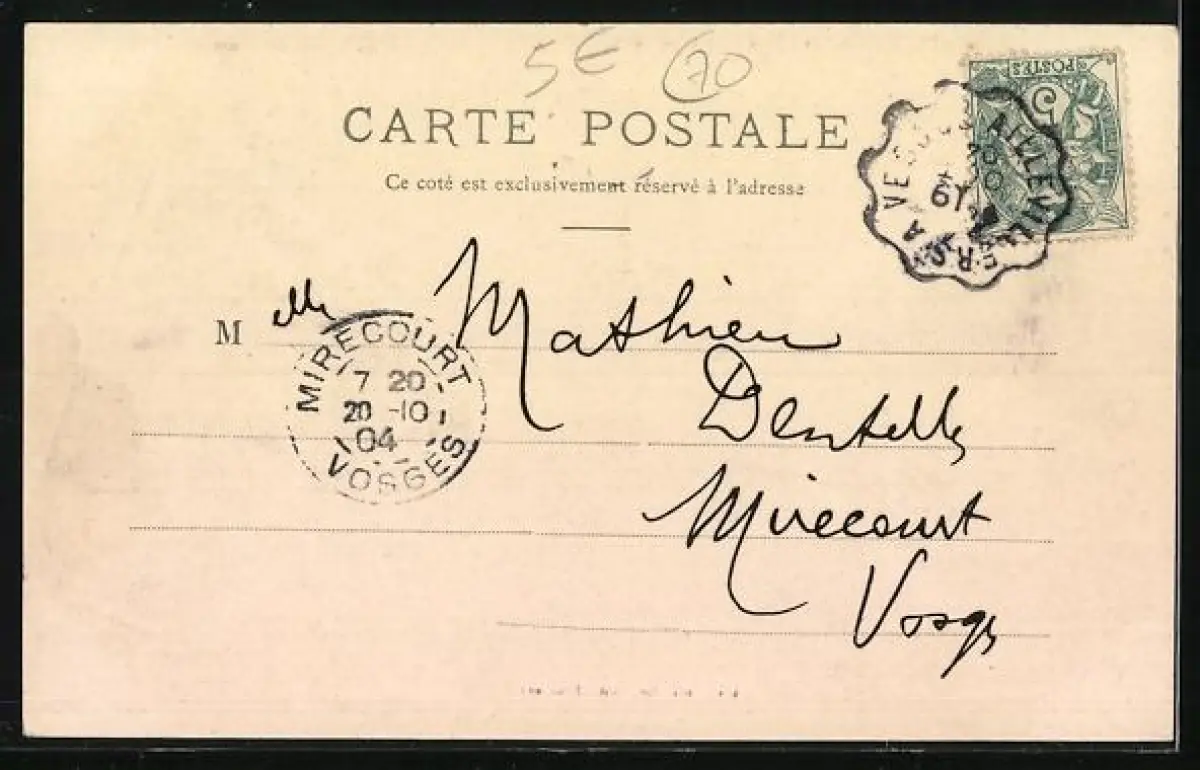 5€ 70
CARTE POSTALE
Ce coté est exclusivement réservé à l'adresse
POSTES
5
AILLEVILLERS A VESOUL
19
M elle Mathieu
Dentelles
Mirecourt
Vosges
MIRECOURT
7 20
20 -10
04
VOSGES